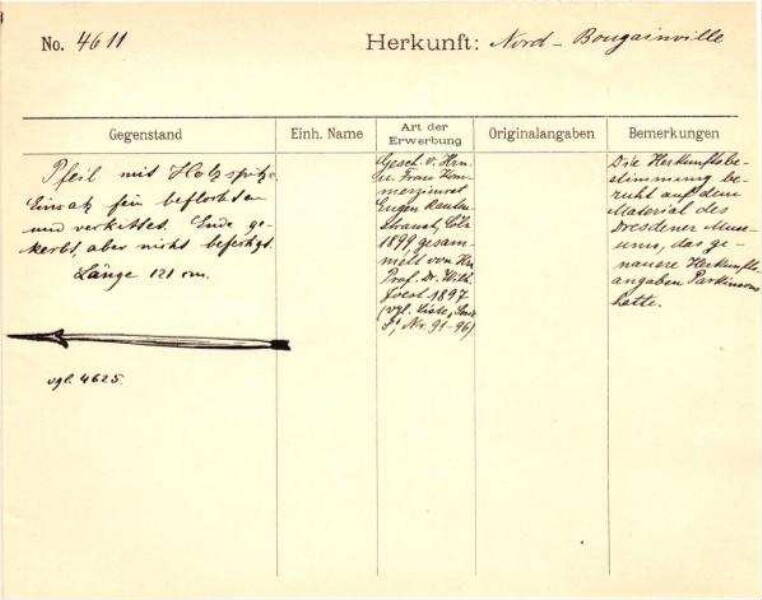 No. 4611
Herkunft: Nord - Bougainville
Gegenstand
Einh. Name
Art der Erwerbung
Originalangaben
Bemerkungen
Pfeil mit Holzspitze.
Einsatz fein beflochten
und verkittet. Ende ge-
kerbt, aber nicht befestigt.
Länge 121 cm.
vgl. 4625.
Gesch. v. Hrn.
u. Frau Kom-
merzienrat
Eugen Rauten-
strauch, Cöln
1899, gesam-
melt von Hrn.
Prof. Dr. Wilh.
Joest 1897
(vgl. Liste,
Nr. 91-96)
Die Herkunftsbe-
stimmung be-
ruht auf dem
Material des
Dresdener Muse-
ums, das ge-
nauere Herkunfts-
angaben Parkinsons
hatte.